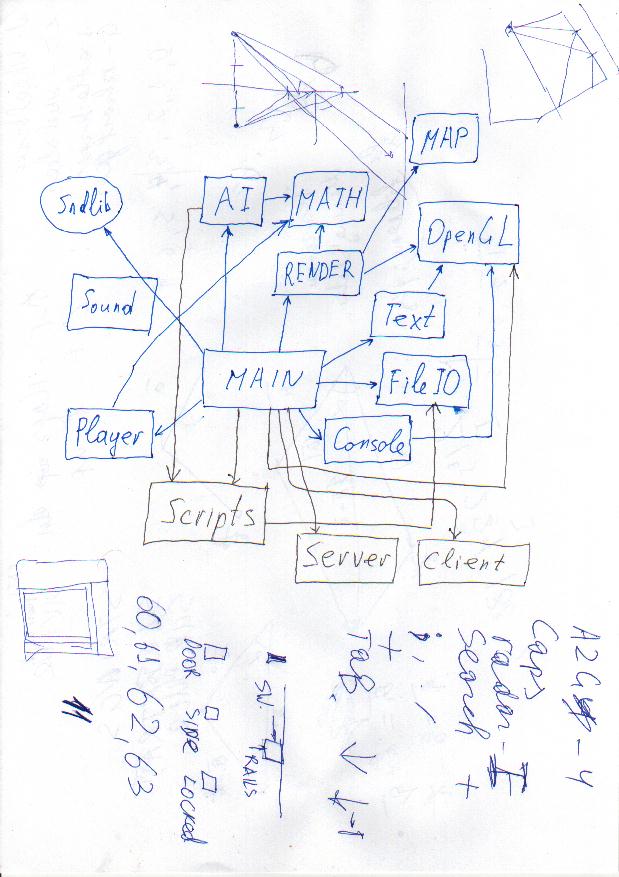 MAP
Sndlib
AI
MATH
OpenGL
RENDER
Sound
Text
MAIN
FileIO
Player
Console
Scripts
Server
Client
Caps
radar -
Search +
Tab
SW.
TRAILS
DOOR SIDE LOCKED
60, 61, 62, 63
11